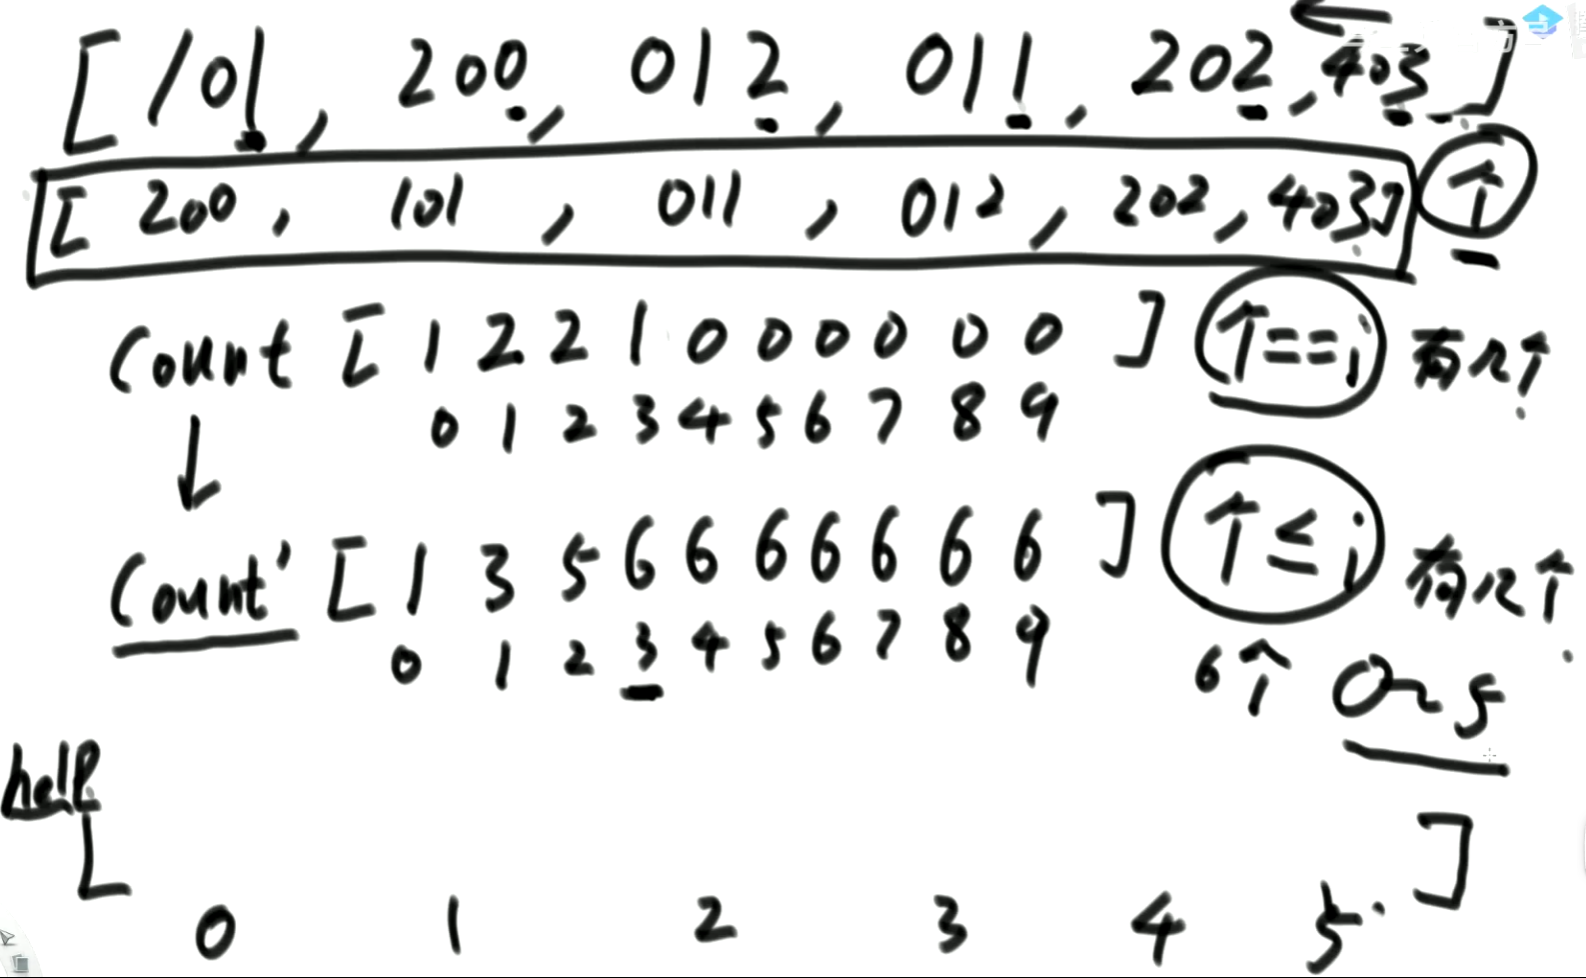 [101, 200, 012, 011, 202, 403]
[200, 101, 011, 012, 202, 403] 个
Count [1 2 2 1 0 0 0 0 0 0] 个==i 有几个
0 1 2 3 4 5 6 7 8 9
↓
Count' [1 3 5 6 6 6 6 6 6 6] 个≤i 有几个
0 1 2 3 4 5 6 7 8 9 6个 0~5
help
[ ]
0 1 2 3 4 5